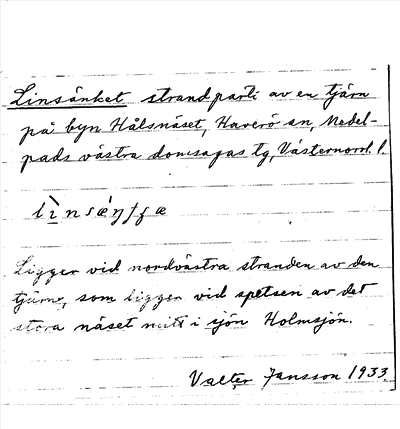 Linsänket strandparti av en tjärn
på byn Hålsnäset, Haverö sn, Medel-
pads västra domsagas tg, Västernorrl. l.
lìnsǽŋfæ
Ligger vid nordvästra stranden av den
tjärn, som ligger vid spetsen av det
stora näset mitt i sjön Holmsjön.
Valter Jansson 1933